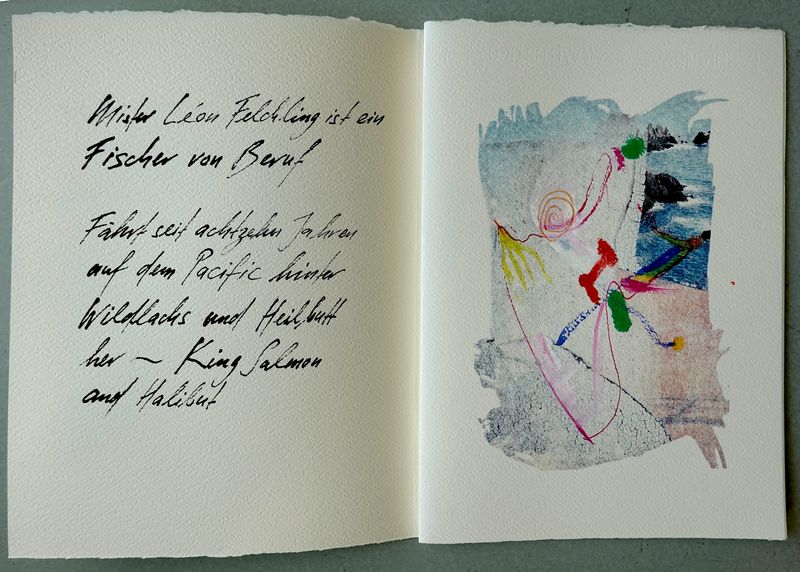 Mister Léon Felchling ist ein
Fischer von Beruf
Fährt seit achtzehn Jahren
auf dem Pacific hinter
Wildlachs und Heilbutt
her – King Salmon
and Halibut